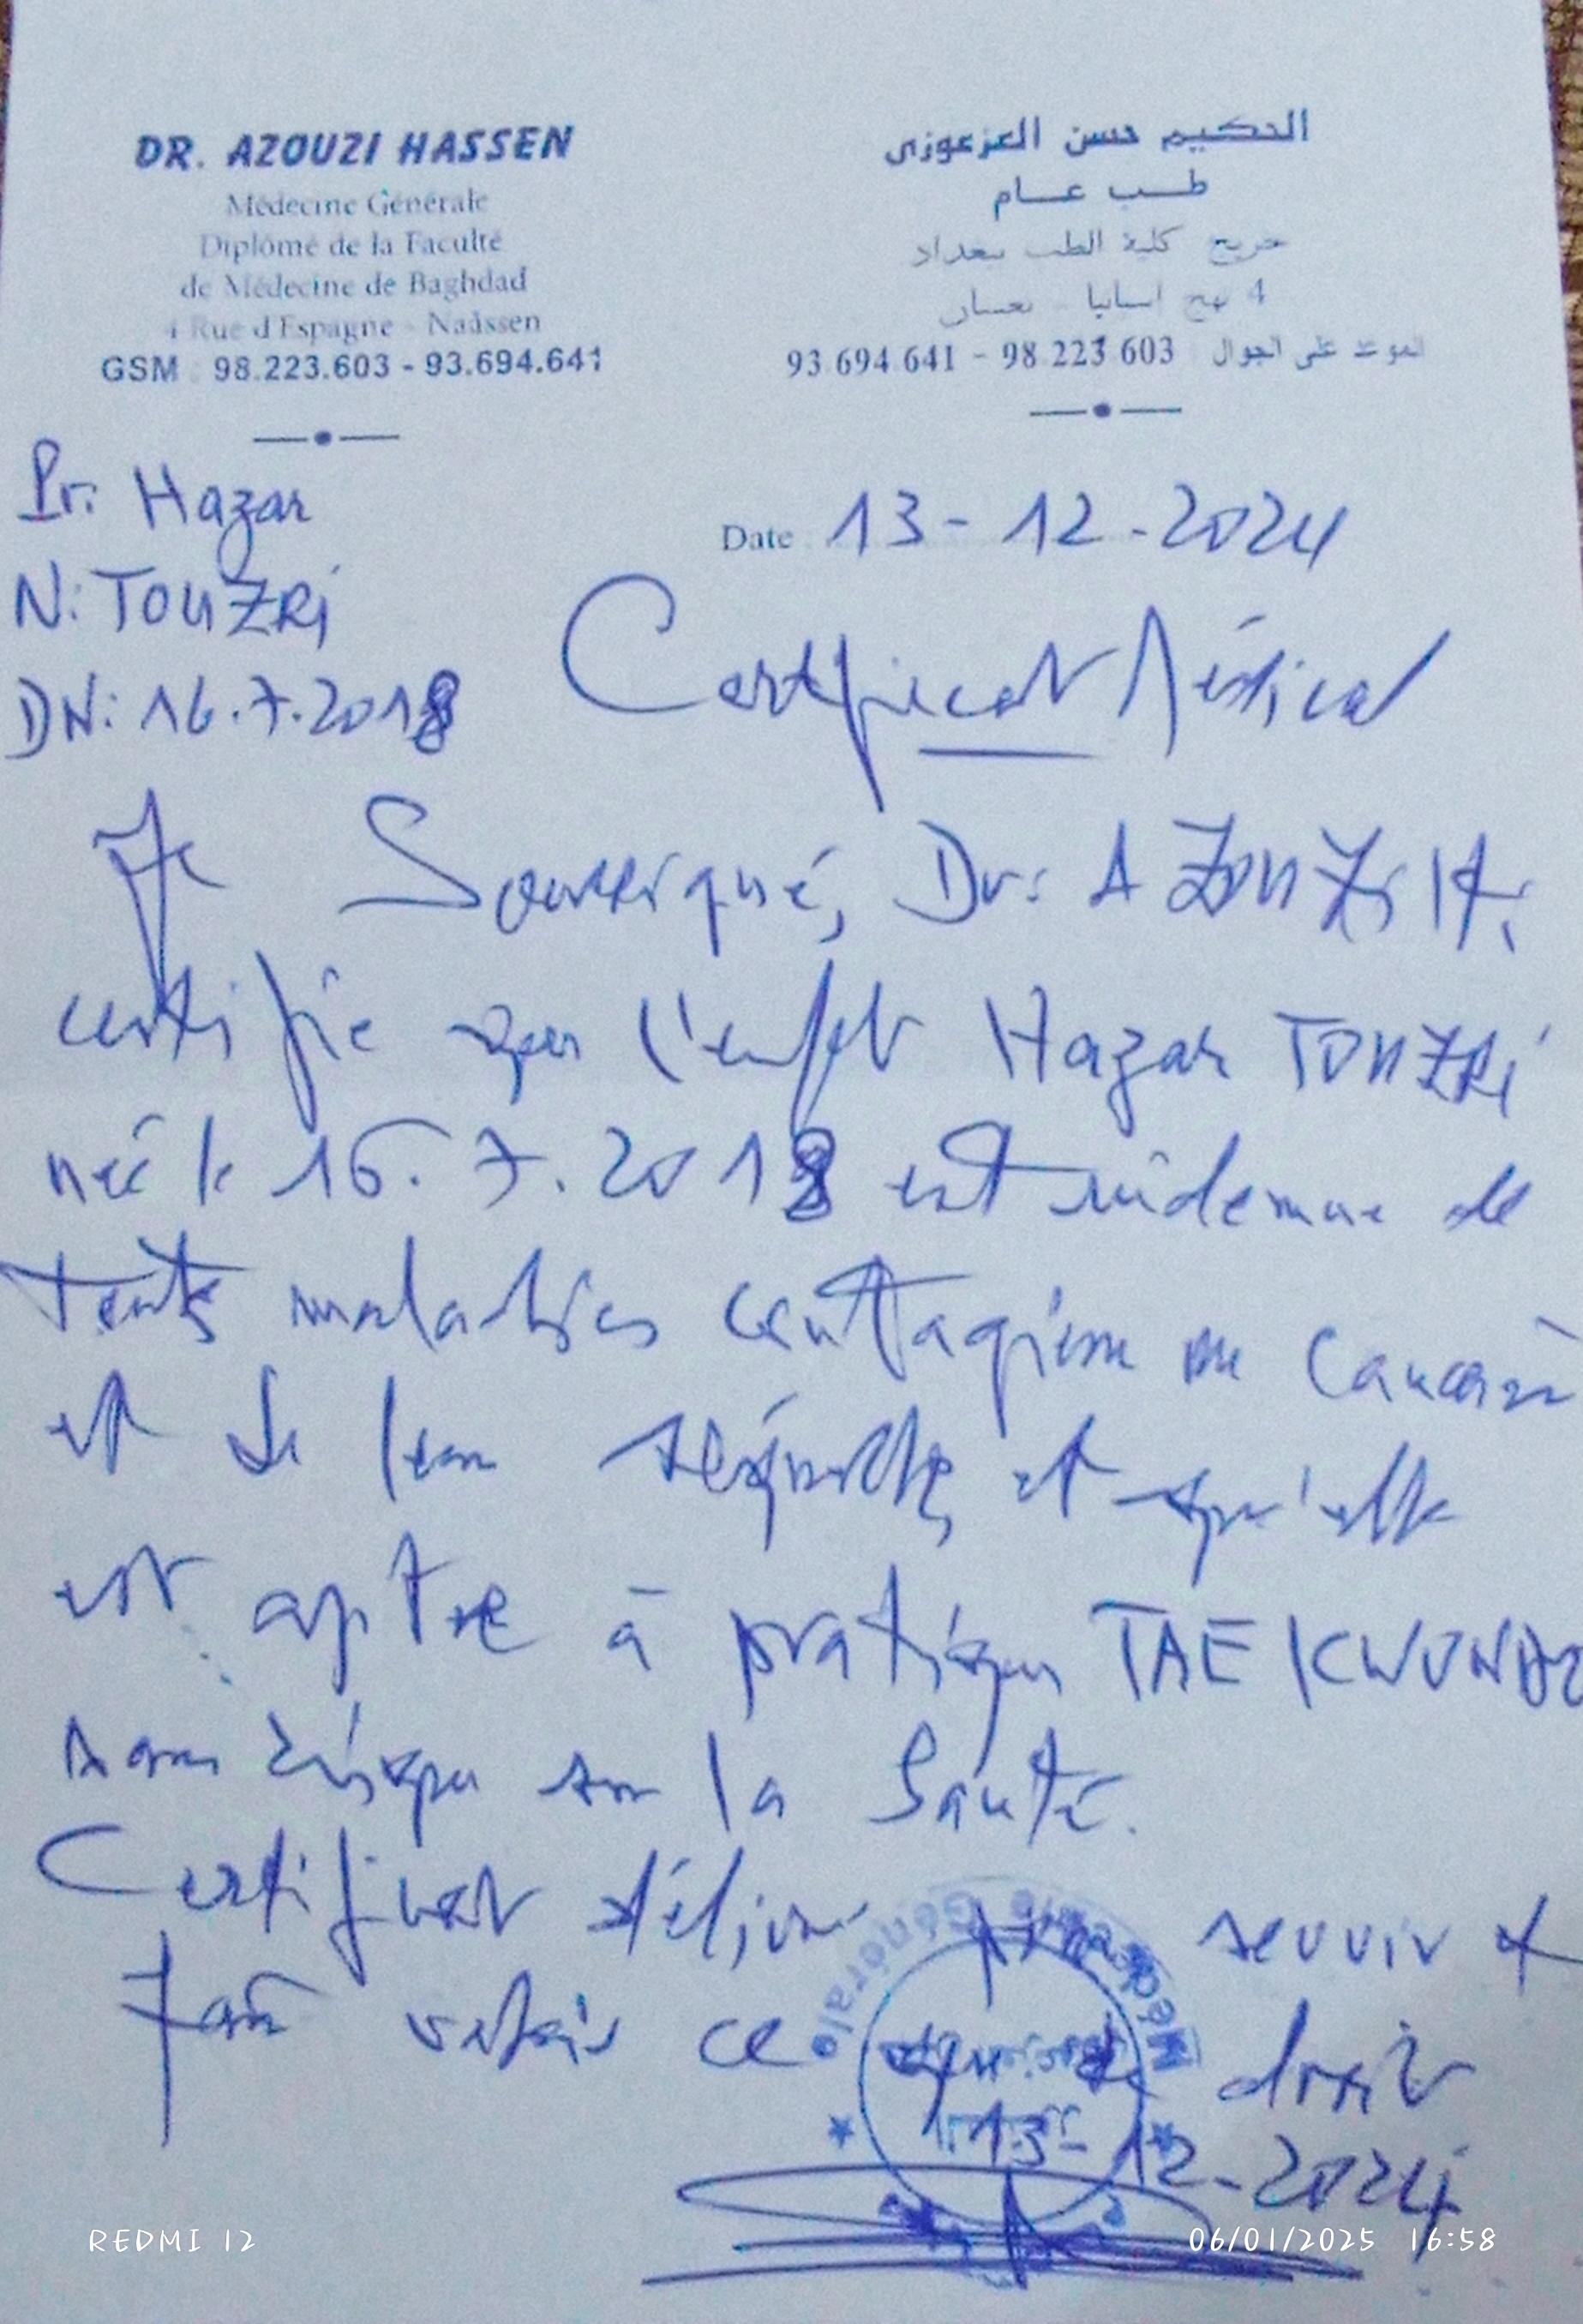 DR. AZOUZI HASSEN
Médecine Générale
Diplômé de la Faculté
de Médecine de Baghdad
4 Rue d'Espagne - Naâssen
GSM : 98.223.603 - 93.694.641
الحكيم حسن العزعوزي
طب عام
خريج كلية الطب بغداد
4 نهج اسبانيا - نعسان
الموعد على الجوال 98.223.603 - 93.694.641
Pr: Hazar
N: TOUZRi
DN: 16.7.2018
Date 13-12-2024
Certificat Médical
Je Soussigné, Dr: AZOUZi H.
certifie que l'enfant Hazar TOUZRi
née le 16.7.2018 est indemne de
toute maladies contagieuse ou
et de leur séquelles, et qu'elle
est apte à pratiquer TAEKWONDO
sans risque sur la Santé.
Certificat délivré pour servir et
faire valoir ce que de droit
13-12-2024
Médecine Générale
REDMI 12
06/01/2025 16:58